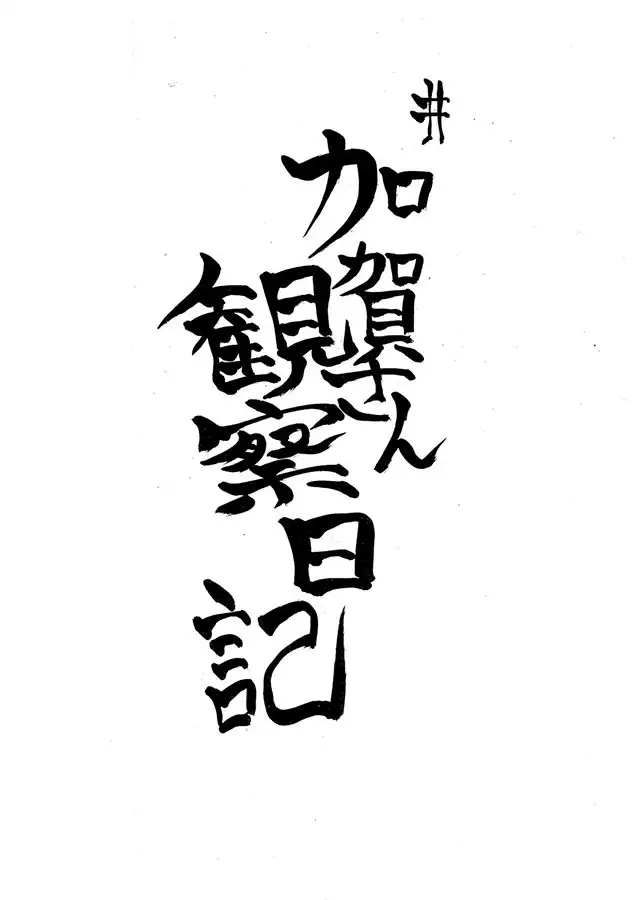 #
加賀さん
観察日記